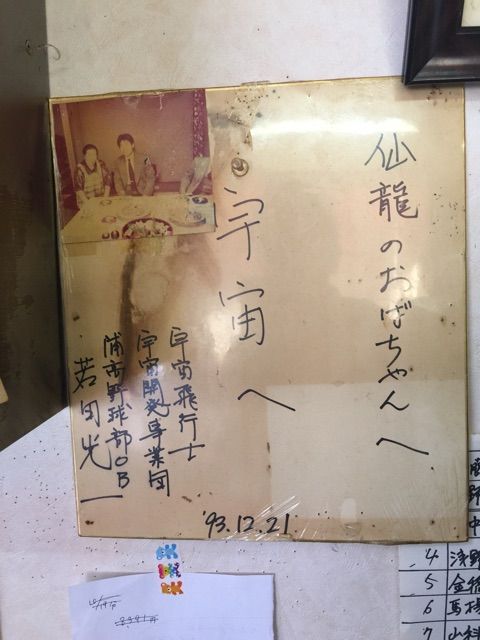 仙龍のおばちゃんへ
宇宙へ
宇宙飛行士
宇宙開発事業団
浦高野球部OB
若田光一
'93.12.21
4
浅野
5
金
6
馬場
7